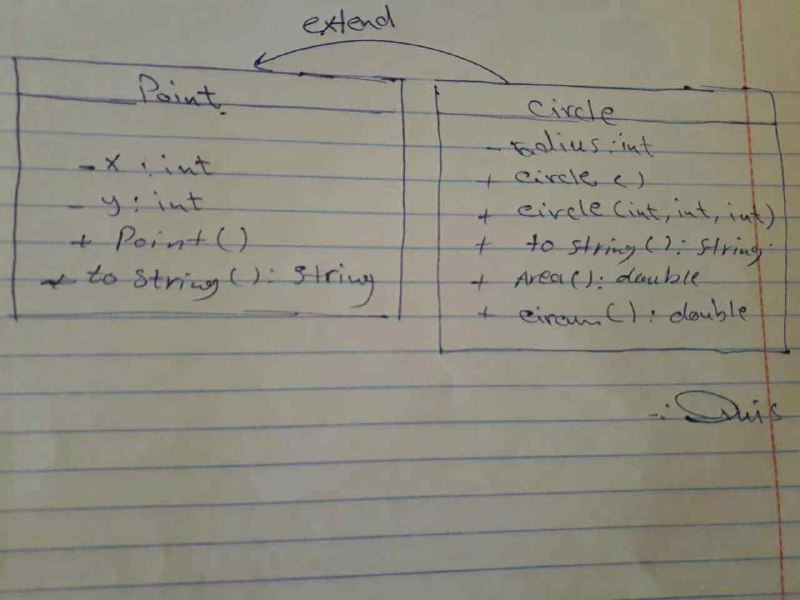 extend
Point
- x : int
- y : int
+ Point ( )
+ to string ( ) : string
circle
- radius : int
+ circle ( )
+ circle (int, int, int)
+ to string ( ) : string
+ Area ( ) : double
+ circum ( ) : double